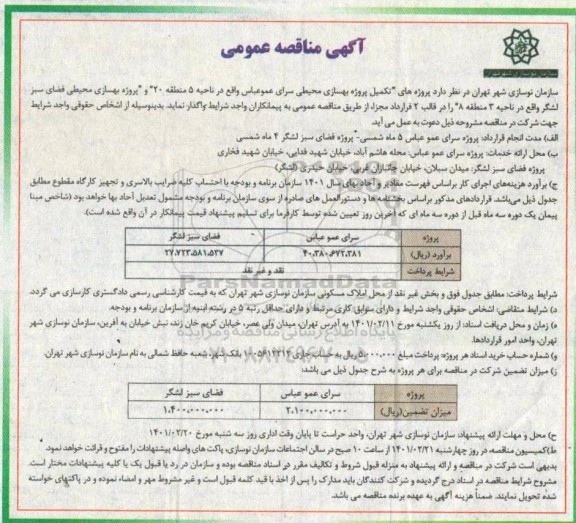 آگهی مناقصه عمومی
سازمان نوسازی شهر تهران
سازمان نوسازی شهر تهران در نظر دارد پروژه های "تکمیل پروژه بهسازی محیطی سرای عموعباس واقع در ناحیه ۵ منطقه ۲۰" و "پروژه بهسازی محیطی فضای سبز
لشگر واقع در ناحیه ۳ منطقه ۸" را در قالب ۲ قرارداد مجزا، از طریق مناقصه عمومی به پیمانکاران واجد شرایط واگذار نماید. بدینوسیله از اشخاص حقوقی واجد شرایط
جهت شرکت در مناقصه مشروحه ذیل دعوت به عمل می آید.
الف) مدت انجام قرارداد: پروژه سرای عمو عباس ۵ ماه شمسی- پروژه فضای سبز لشگر ۴ ماه شمسی
ب) محل ارائه خدمات: پروژه سرای عمو عباس: محله هاشم آباد، خیابان شهید فدایی، خیابان شهید فخاری
پروژه فضای سبز لشگر: میدان سبلان، خیابان جانبازان غربی، خیابان حیدری (لشگر)
ج) برآورد هزینه‌های اجرای کار براساس فهرست مقادیر و آحاد بهای سال ۱۴۰۱ سازمان برنامه و بودجه با احتساب کلیه ضرایب بالاسری و تجهیز کارگاه مقطوع مطابق
جدول ذیل می‌باشد. قراردادهای مذکور براساس بخشنامه ها و دستورالعمل های صادره از سوی سازمان برنامه و بودجه مشمول تعدیل آحاد بها خواهد بود (شاخص مبنا
پیمان یک دوره سه ماه قبل از دوره سه ماه ای که آخرین روز تعیین شده توسط کارفرما برای تسلیم پیشنهاد قیمت پیمانکار در آن واقع شده است).
پروژه سرای عمو عباس فضای سبز لشگر
برآورد (ریال) ۴۰،۳۸۰،۶۷۲،۳۸۱ ۲۷،۷۲۳،۵۸۱،۵۳۷
شرایط پرداخت نقد و غیر نقد
ParsNamadData
شرایط پرداخت: مطابق جدول فوق و بخش غیر نقد از محل املاک مسکونی سازمان نوسازی شهر تهران که به قیمت کارشناسی رسمی دادگستری کارسازی می گردد.
د) شرایط متقاضی: اشخاص حقوقی واجد شرایط و دارای سوابق کاری مرتبط و دارای حداقل رتبه ۵ در رشته ابنیه از سازمان برنامه و بودجه.
ه) زمان و محل دریافت اسناد: از روز یکشنبه مورخ ۱۴۰۱/۰۲/۱۱ به آدرس تهران، میدان ولی عصر، خیابان کریم خان زند، نبش خیابان به آفرین، سازمان نوسازی شهر
تهران، واحد امور قراردادها.
و) شماره حساب خرید اسناد هر پروژه: پرداخت مبلغ ۵،۰۰۰،۰۰۰ ریال به حساب جاری بانک شهر، شعبه حافظ شمالی به نام سازمان نوسازی شهر تهران.
ز) میزان تضمین شرکت در مناقصه برای هر پروژه به شرح جدول ذیل می باشد:
پروژه سرای عمو عباس فضای سبز لشگر
میزان تضمین(ریال) ۲،۱۰۰،۰۰۰،۰۰۰ ۱،۴۰۰،۰۰۰،۰۰۰
ح) محل و مهلت ارائه پیشنهاد: سازمان نوسازی شهر تهران، واحد حراست تا پایان وقت اداری روز سه شنبه مورخ ۱۴۰۱/۰۲/۲۰
ط)کمیسیون مناقصه، در روز چهارشنبه ۱۴۰۱/۰۲/۲۱ از ساعت ۱۰ صبح در سالن اجتماعات سازمان نوسازی، پاکت های واصله پیشنهادات را مفتوح و قرائت خواهد نمود.
بدیهی است شرکت در مناقصه و ارائه پیشنهاد به منزله قبول شروط و تکالیف مقرر در اسناد مناقصه بوده و سازمان در رد یا قبول یک یا کلیه پیشنهادات مختار است.
مشروح شرایط مناقصه در اسناد درج گردیده و شرکت کنندگان باید مدارک را پس از اخذ با قید کلمه قبول است و غیر مشروط مهر و امضاء نموده و در پاکتهای خواسته
شده تحویل نمایند. ضمناً هزینه آگهی به عهده برنده مناقصه می باشد.